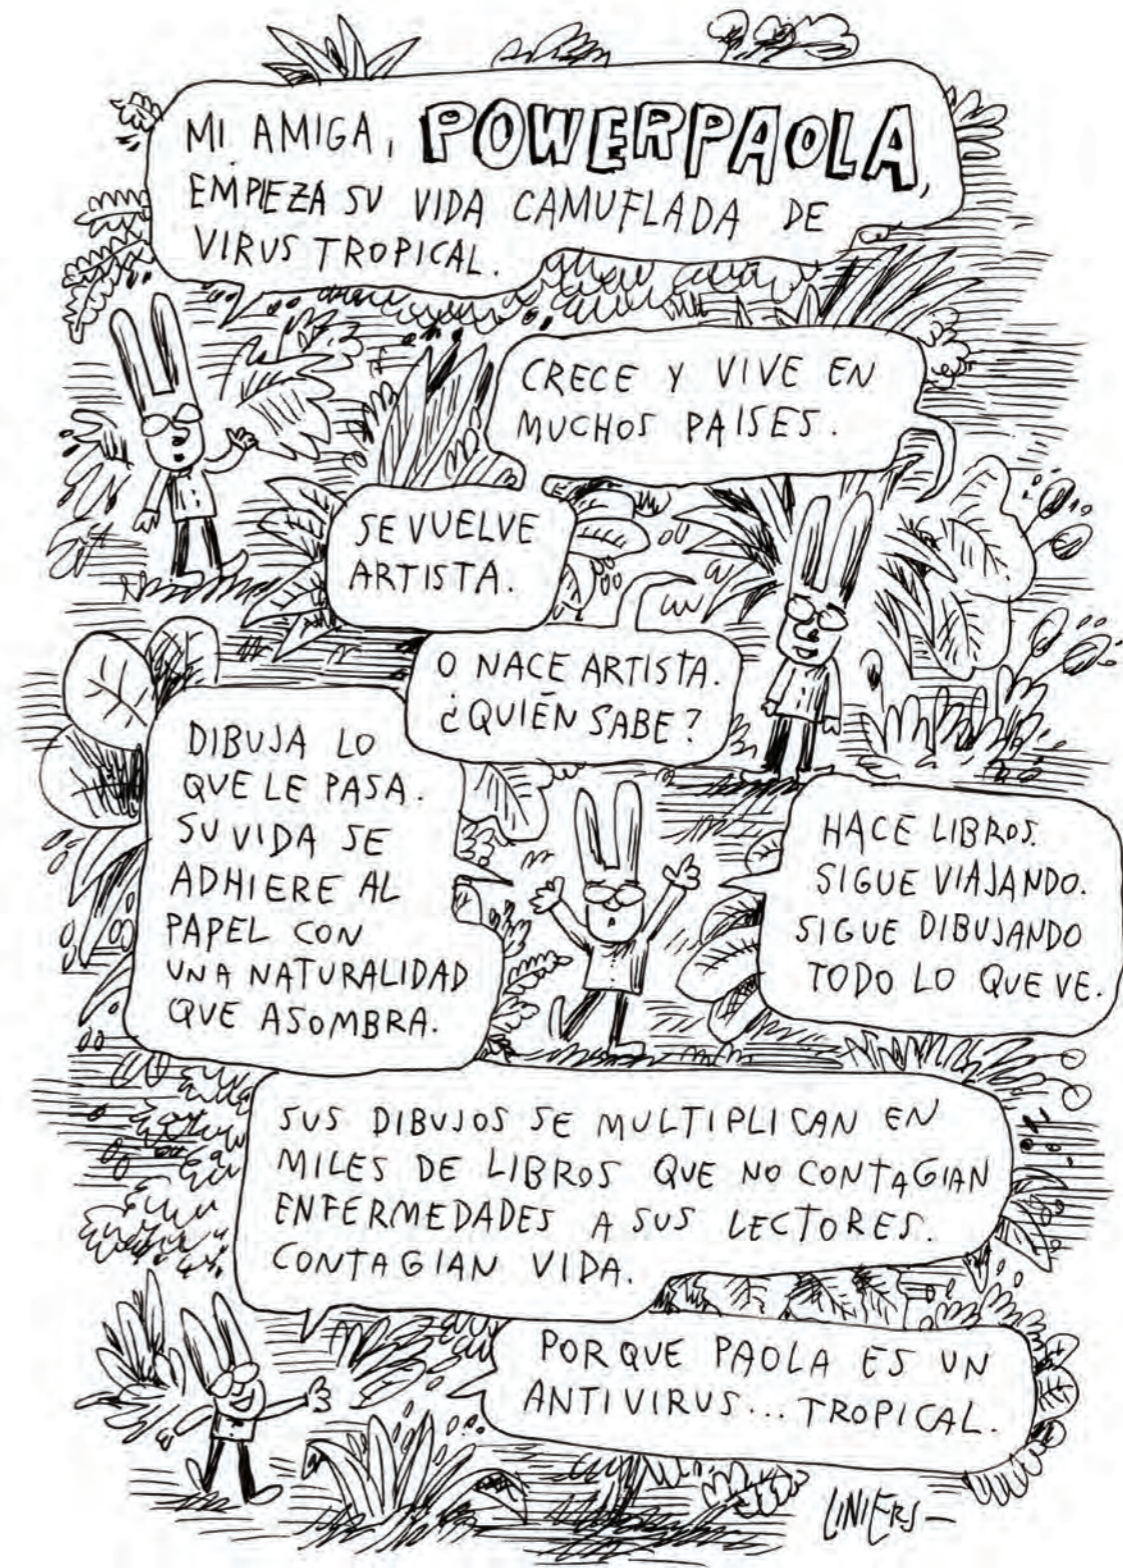 MI AMIGA, POWERPAOLA,
EMPIEZA SU VIDA CAMUFLADA DE
VIRUS TROPICAL.
CRECE Y VIVE EN
MUCHOS PAISES.
SE VUELVE
ARTISTA.
O NACE ARTISTA.
¿QUIÉN SABE?
DIBUJA LO
QUE LE PASA.
SU VIDA SE
ADHIERE AL
PAPEL CON
UNA NATURALIDAD
QUE ASOMBRA.
HACE LIBROS.
SIGUE VIAJANDO.
SIGUE DIBUJANDO
TODO LO QUE VE.
SUS DIBUJOS SE MULTIPLICAN EN
MILES DE LIBROS QUE NO CONTAGIAN
ENFERMEDADES A SUS LECTORES.
CONTAGIAN VIDA.
PORQUE PAOLA ES UN
ANTIVIRUS... TROPICAL.
LINIERS-